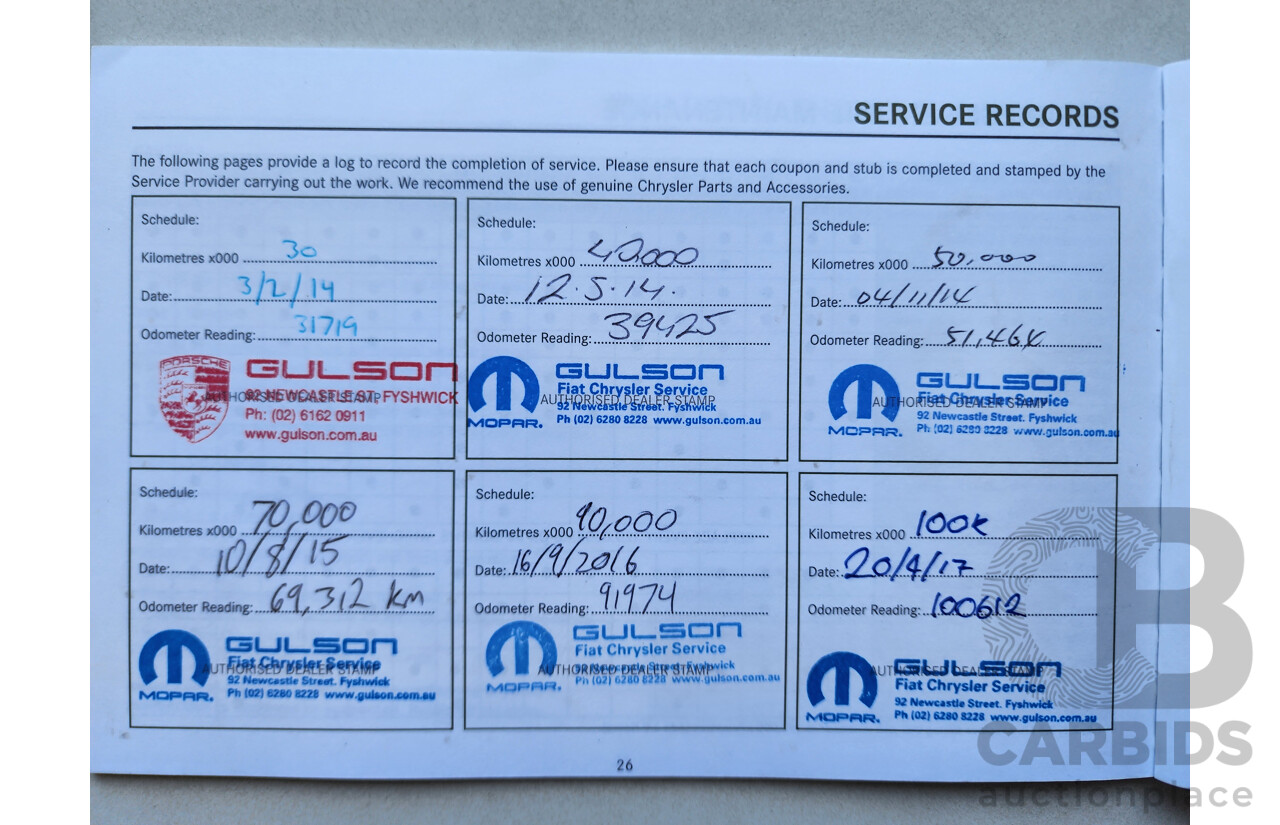 SERVICE RECORDS
The following pages provide a log to record the completion of service. Please ensure that each coupon and stub is completed and stamped by the
Service Provider carrying out the work. We recommend the use of genuine Chrysler Parts and Accessories.
Schedule:
Kilometres x000 30
Date: 3/2/14
Odometer Reading: 31719
PORSCHE
GULSON
92 NEWCASTLE ST. FYSHWICK
AUTHORISED DEALER STAMP
Ph: (02) 6162 0911
www.gulson.com.au
Schedule:
Kilometres x000 40,000
Date: 12.5.14.
Odometer Reading: 39425
GULSON
Fiat Chrysler Service
AUTHORISED DEALER STAMP
92 Newcastle Street. Fyshwick
MOPAR. Ph (02) 6280 8228 www.gulson.com.au
Schedule:
Kilometres x000 50,000
Date: 04/11/14
Odometer Reading: 51,464
GULSON
Fiat Chrysler Service
AUTHORISED DEALER STAMP
92 Newcastle Street. Fyshwick
MOPAR. Ph (02) 6280 8228 www.gulson.com.au
Schedule:
Kilometres x000 70,000
Date: 10/8/15
Odometer Reading: 69,312 km
GULSON
Fiat Chrysler Service
AUTHORISED DEALER STAMP
92 Newcastle Street. Fyshwick
MOPAR. Ph (02) 6280 8228 www.gulson.com.au
Schedule:
Kilometres x000 90,000
Date: 16/9/2016
Odometer Reading: 91974
GULSON
Fiat Chrysler Service
92 Newcastle Street. Fyshwick
AUTHORISED DEALER STAMP
MOPAR. Ph (02) 6280 8228 www.gulson.com.au
Schedule:
Kilometres x000 100k
Date: 20/4/17
Odometer Reading: 100612
GULSON
AUTHORISED DEALER STAMP
Fiat Chrysler Service
92 Newcastle Street. Fyshwick
MOPAR. Ph (02) 6280 8228 www.gulson.com.au
26
CARBIDS
auctionplace